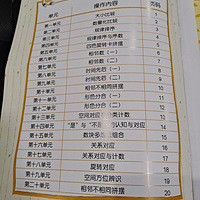 单元 操作内容 页码
第一单元 大小比较 1
第二单元 比较 2
第三单元 规律排序 3
第四单元 规律排序与序数 4
第五单元 四色旋转拼摆 5
第六单元 相邻数（一） 6
第七单元 相邻数（二） 7
第八单元 时间先后（一） 8
第九单元 时间先后（二） 9
第十单元 相邻不相同拼摆 10
第十一单元 形色分合（一） 11
第十二单元 形色分合（二） 12
第十三单元 空间对应与类计数 13
第十四单元 “是”与“不是”的认知与对应 14
第十五单元 数块多组合 15
第十六单元 关系对应 16
第十七单元 关系对应与计数 17
第十八单元 旋转对应 18
第十九单元 空间方位辨识 19
第二十单元 相邻不相同拼摆 20